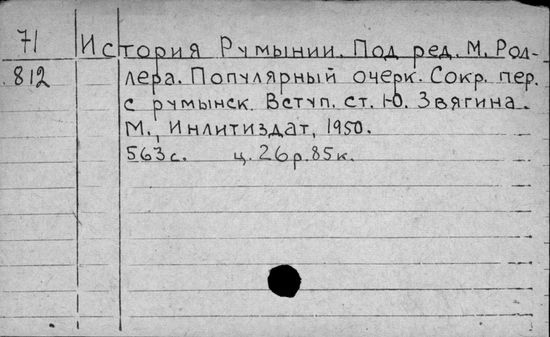 71
812
История Румынии. Под ред. М. Рол-
лера. Популярный очерк. Сокр. пер.
с румынск. Вступ. ст. Ю. Звягина.
М., Инлитиздат, 1950.
563 с. ц. 26р.85к.